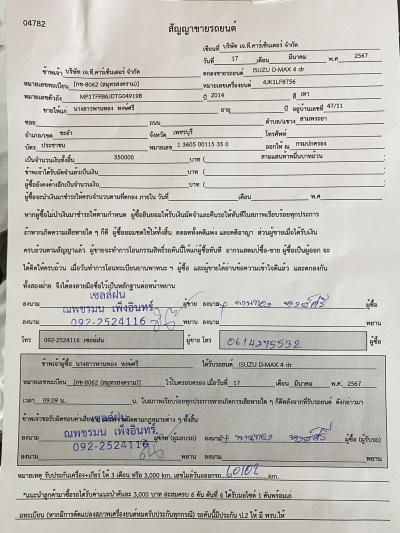 04782
สัญญาขายรถยนต์
เขียนที่ บริษัท เจ.ที.คาร์เซ็นเตอร์ จำกัด
วันที่ 17 เดือน มีนาคม พ.ศ 2567
ข้าพเจ้า บริษัท เจ.ที.คาร์เซ็นเตอร์ จำกัด ตกลงขายรถยนต์ ISUZU D-MAX 4 dr
หมายเลขทะเบียน [กข-8062 (สมุทรสงคราม)] หมายเลขเครื่องยนต์ 4JK1LF8756
หมายเลขตัวถัง MP1TFR86JDTG049198 ปี 2014 สี เทา
ขายให้แก่ นางสาวพานทอง หงษ์ศรี อายุ ปี อยู่บ้านเลขที่ 47/11
ซอย ถนน ตำบล/แขวง สามพระยา
อำเภอ/เขต ชะอำ จังหวัด เพชรบุรี โทรศัพท์
บัตร ประชาชน หมายเลข 1 3605 00115 35 0 ออกให้ ณ กรมปกครอง
เป็นจำนวนเงินทั้งสิ้น 350000 บาท ( สามแสนห้าหมื่นบาทถ้วน )
ข้าพเจ้าได้รับมัดจำแล้วเป็นเงิน บาท ( )
ผู้ซื้อยังคงค้างอีกเป็นจำนวนเงิน บาท ( )
ผู้ซื้อจะนำเงินมาชำระให้ครบจำนวนตามที่ตกลง ภายใน วันที่ เดือน พ.ศ.
หากผู้ซื้อไม่นำเงินมาชำระให้ตามกำหนด ผู้ซื้อยินยอมให้รับเงินมัดจำและคืนรถให้ทันทีในสภาพเรียบร้อยทุกประการ
ถ้าหากเกิดความเสียหายใด ๆ ก็ดี ผู้ซื้อยอมชดใช้ให้ทั้งสิ้น ตลอดทั้งคดีแพ่ง และคดีอาญา ส่วนผู้ขายเมื่อได้รับเงิน
ครบถ้วนตามสัญญาแล้ว ผู้ขายจะทำการโอนกรรมสิทธิ์รถคันนี้ให้แก่ผู้ซื้อทันที อากรแสตมป์ซื้อ-ขาย ผู้ซื้อเป็นผู้ออก จะ
ได้ติดให้ครบถ้วน เมื่อวันทำการโอนทะเบียนยานพาหนะ ฯ ผู้ซื้อ และผู้ขายได้อ่านข้อความเข้าใจดีแล้ว และตกลงกัน
ทั้งสองฝ่าย จึงได้ลงลายมือชื่อไว้เป็นหลักฐานต่อหน้าพยาน
เซลล์ฝน
ลงนาม ณพชรมน เพ็งอินทร์ ผู้ขาย ลงนาม พานทอง หงษ์ศรี ผู้ซื้อ
ลงนาม 092-2524116 พยาน ลงนาม พยาน
โทร 092-2524116 เซลล์ฝน ผู้ขาย โทร 0614275532 ผู้ซื้อ
ข้าพเจ้าผู้ซื้อ นางสาวพานทอง หงษ์ศรี ได้รับรถยนต์ ISUZU D-MAX 4 dr
หมายเลขทะเบียน [กข-8062 (สมุทรสงคราม)] ไว้ในครอบครอง เมื่อวันที่ 17 เดือน มีนาคม พ.ศ. 2567
เวลา 09.09 น. น. ในสภาพเรียบร้อยทุกประการหากเกิดการเสียหายใด ๆ ก็ดีหลังจากที่รับรถยนต์ ดังกล่าวมา
ข้าพเจ้าขอรับผิดชอบค่าเสียหาย
เซลล์ฝน
ลงนาม ณพชรมน เพ็งอินทร์ ผู้ขาย (ผู้มอบรถ) ลงนาม พานทอง หงษ์ศรี ผู้ซื้อ (ผู้รับรถ)
ลงนาม 092-2524116 พยาน ลงนาม พยาน
หมายเหตุ รับประกันเครื่อง+เกียร์ ให้ 3 เดือน หรือ 3,000 km. เลขไมล์วันออกรถ 60102 km.
*แนะนำลูกค้ามาซื้อรถได้รับค่าแนะนำคันละ 3,000 บาท สะสมครบ 6 คัน คันที่ 6 ได้รับมอไซต์ 1 คันพร้อมเล่
มทะเบียน (หากมีการดัดแปลงสภาพเครื่องยนต์หมดรับประกันทุกกรณี) รถคันนี้มีประกัน ป.2 ให้ มี พรบ.ให้